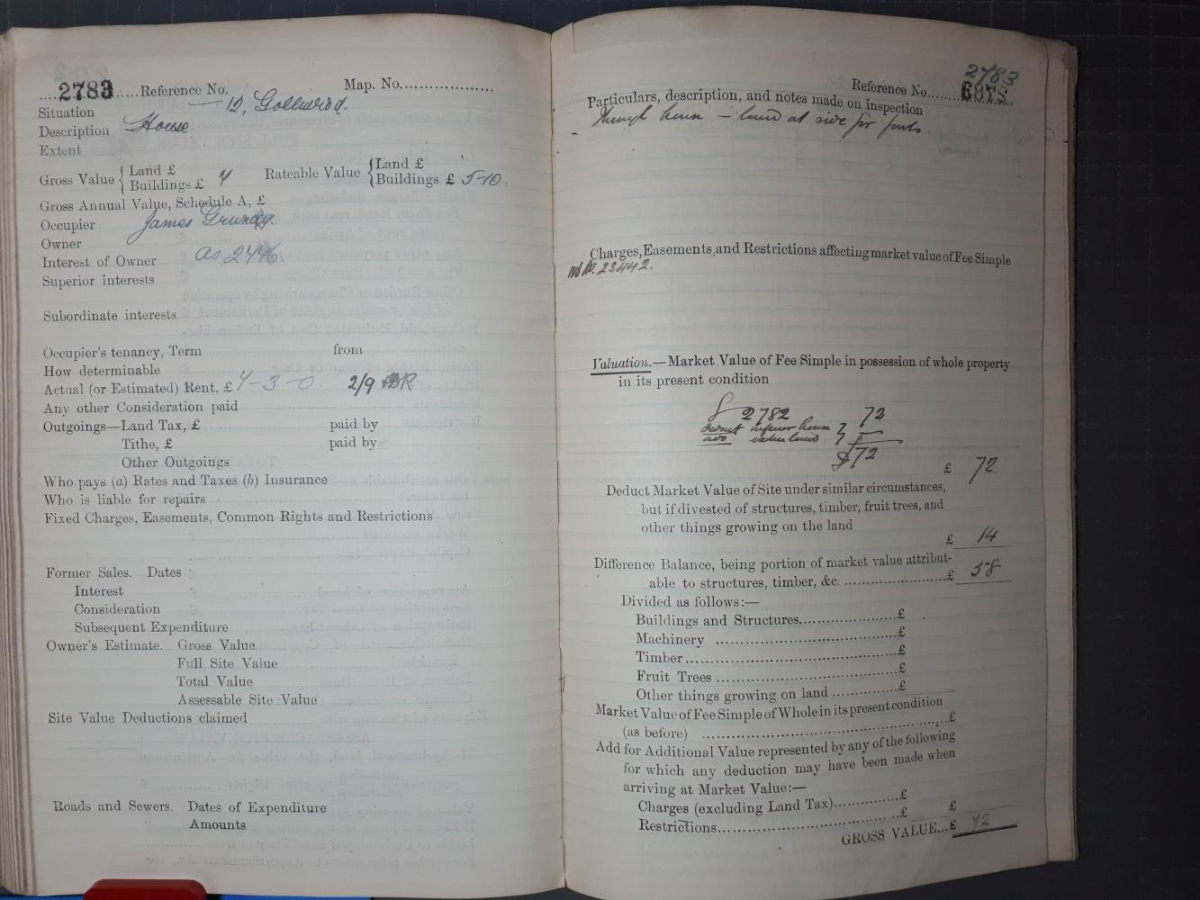 2783 Reference No. Map. No.
Situation 12, Gollinrod.
Description House
Extent
Gross Value { Land £
Buildings £ 7
Rateable Value { Land £
Buildings £ 5-10.
Gross Annual Value, Schedule A, £
Occupier James Grundy.
Owner
Interest of Owner as
Superior interests
Subordinate interests
Occupier's tenancy, Term from
How determinable
Actual (or Estimated) Rent, £ 7-3-0. 2/9
Any other Consideration paid
Outgoings—Land Tax, £ paid by
Tithe, £ paid by
Other Outgoings
Who pays (a) Rates and Taxes (b) Insurance
Who is liable for repairs
Fixed Charges, Easements, Common Rights and Restrictions
Former Sales. Dates
Interest
Consideration
Subsequent Expenditure
Owner's Estimate. Gross Value
Full Site Value
Total Value
Assessable Site Value
Site Value Deductions claimed
Roads and Sewers. Dates of Expenditure
Amounts
2783
Reference No. 6875
Particulars, description, and notes made on inspection
Through house — land at side for fowls
Charges, Easements, and Restrictions affecting market value of Fee Simple
23442.
Valuation.—Market Value of Fee Simple in possession of whole property
in its present condition
2782 72
deduct inferior house 7
add extra land 7
£72
£ 72
Deduct Market Value of Site under similar circumstances,
but if divested of structures, timber, fruit trees, and
other things growing on the land
£ 14
Difference Balance, being portion of market value attribut-
able to structures, timber, &c. £ 58
Divided as follows:—
Buildings and Structures £
Machinery £
Timber £
Fruit Trees £
Other things growing on land £
Market Value of Fee Simple of Whole in its present condition
(as before) £
Add for Additional Value represented by any of the following
for which any deduction may have been made when
arriving at Market Value:—
Charges (excluding Land Tax) £
Restrictions £ £
GROSS VALUE...£ 72